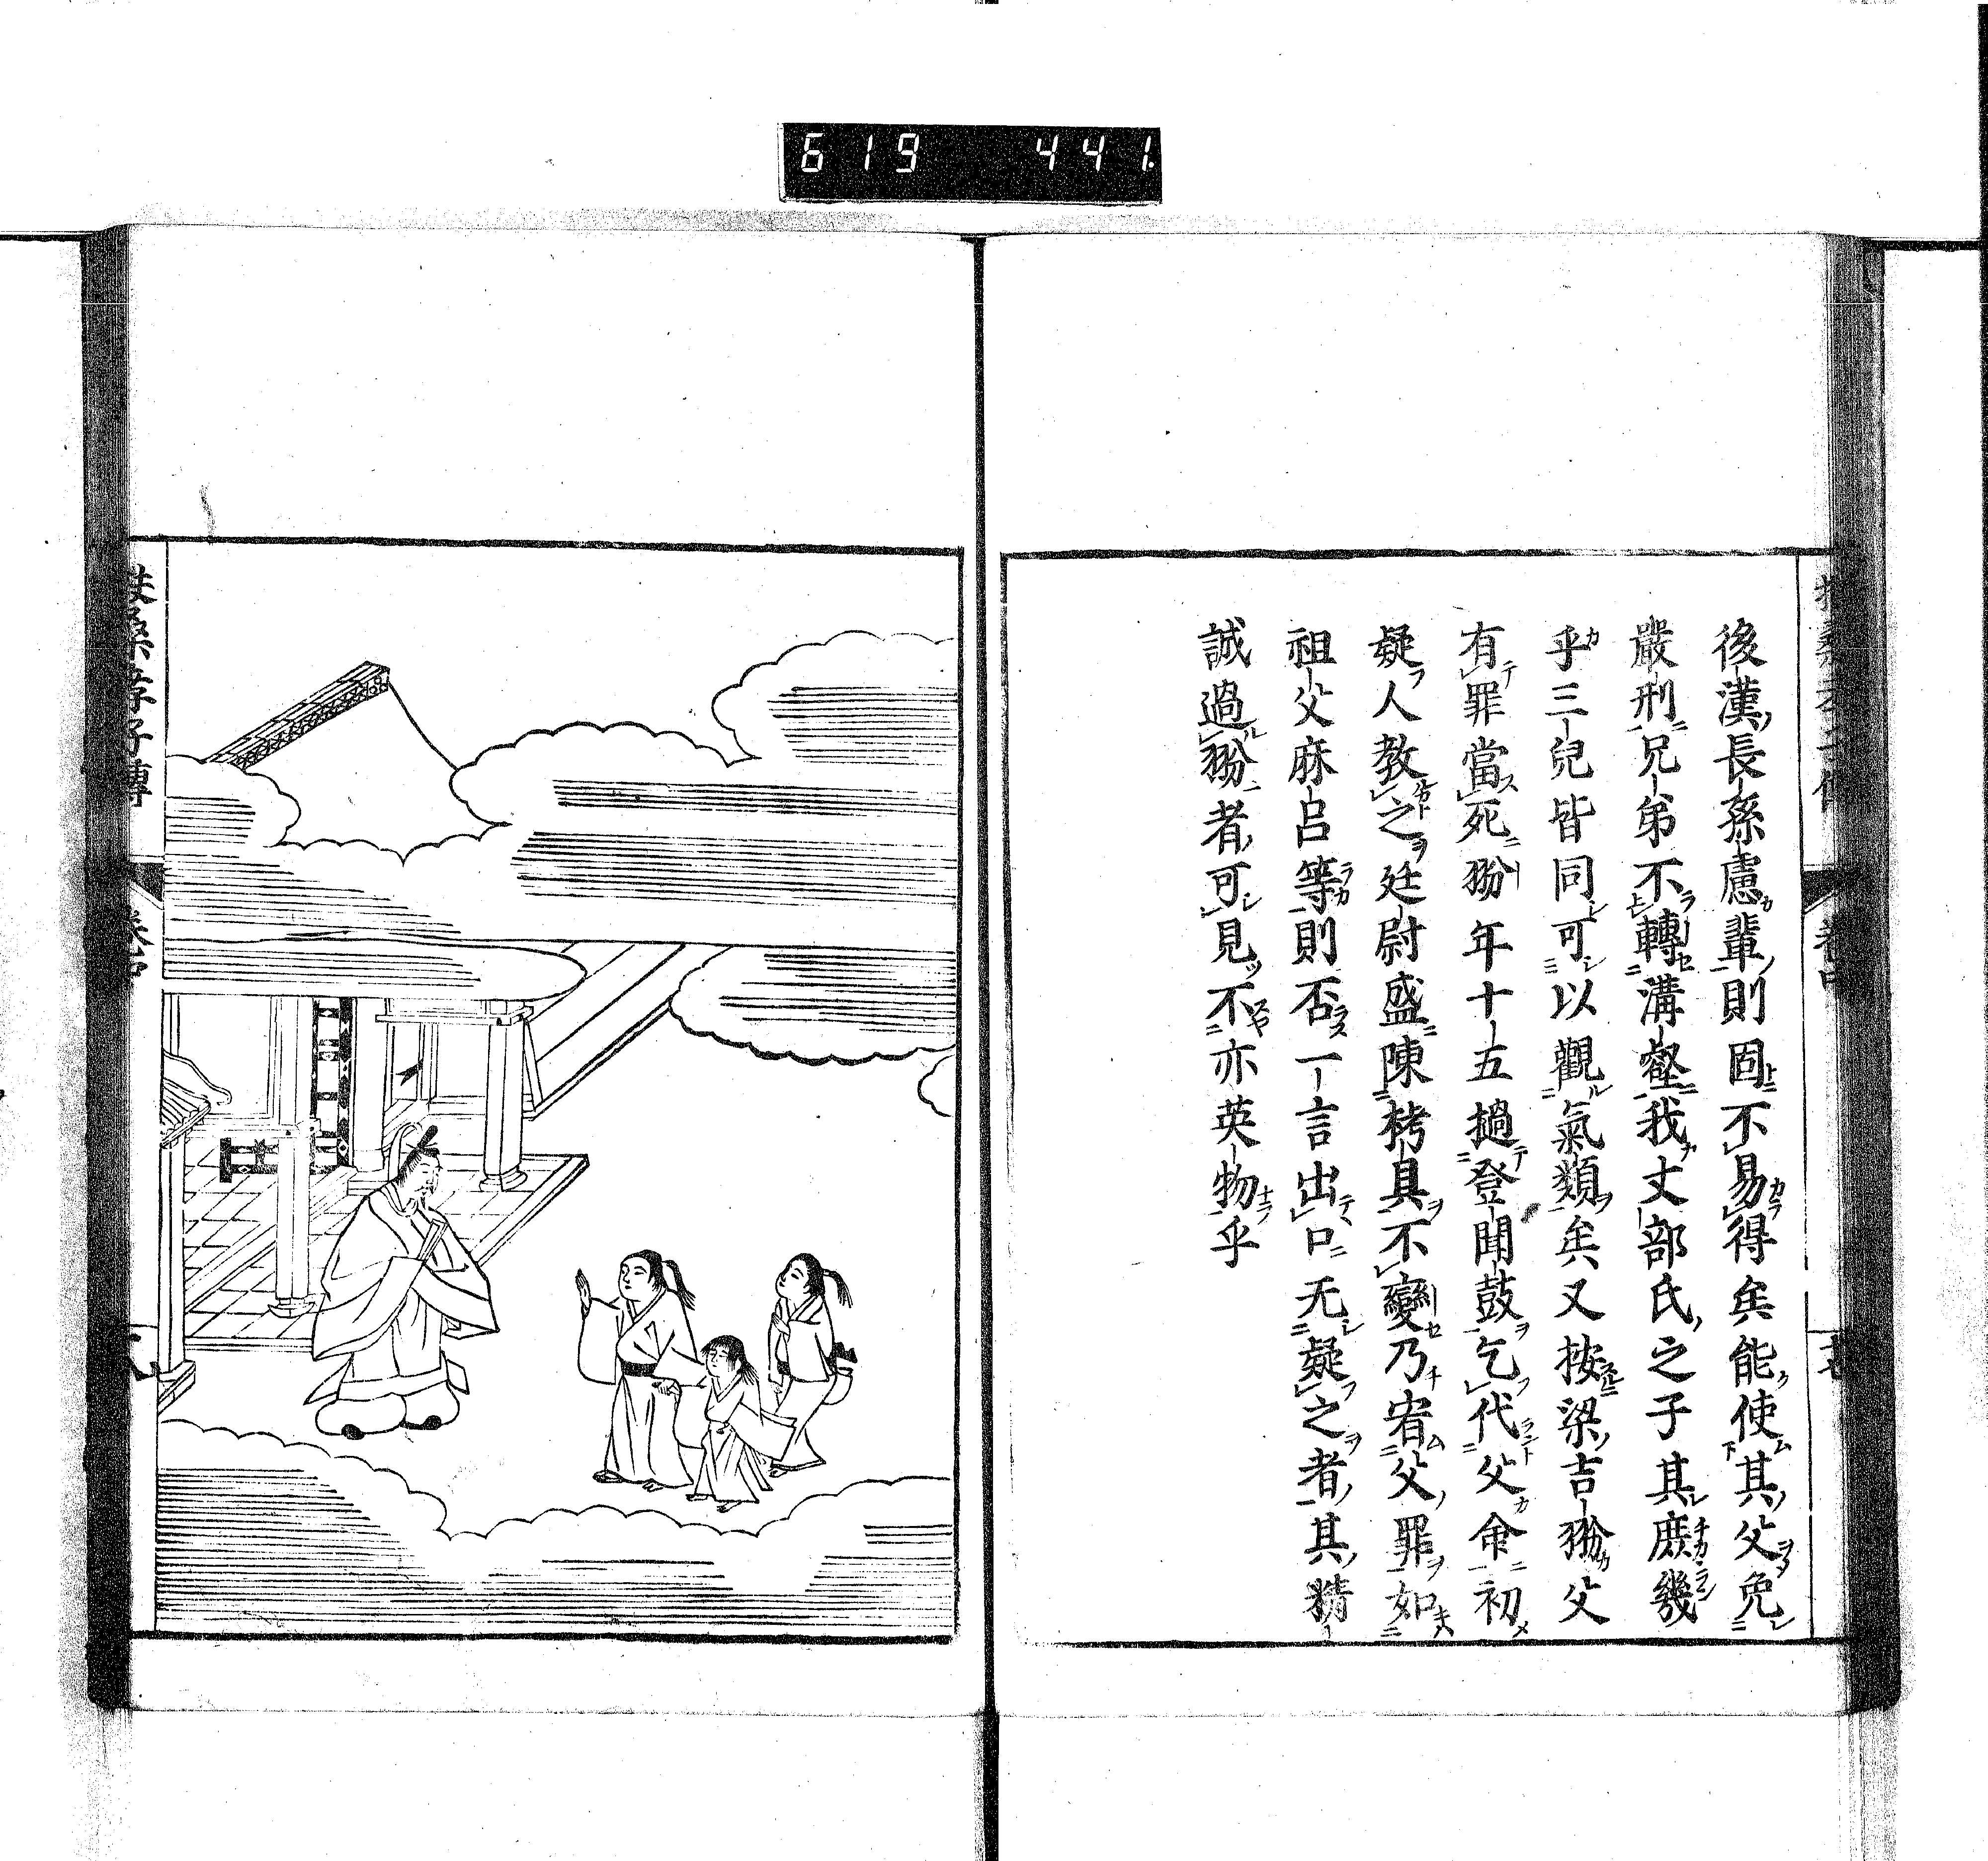 619 441.
後漢長孫慮輩則固不易得矣能使其父免
嚴刑兄弟不轉溝壑我丈部氏之子其庶幾
乎三兒皆同可以觀氣類矣又按梁吉翂父
有罪當死翂年十五撾登聞鼓乞代父命初
疑人教之廷尉盛陳栲具不變乃宥父罪如
祖父麻呂等則否一言出口无疑之者其精
誠過翂者可見不亦英物乎
扶桑孝子傳
卷中